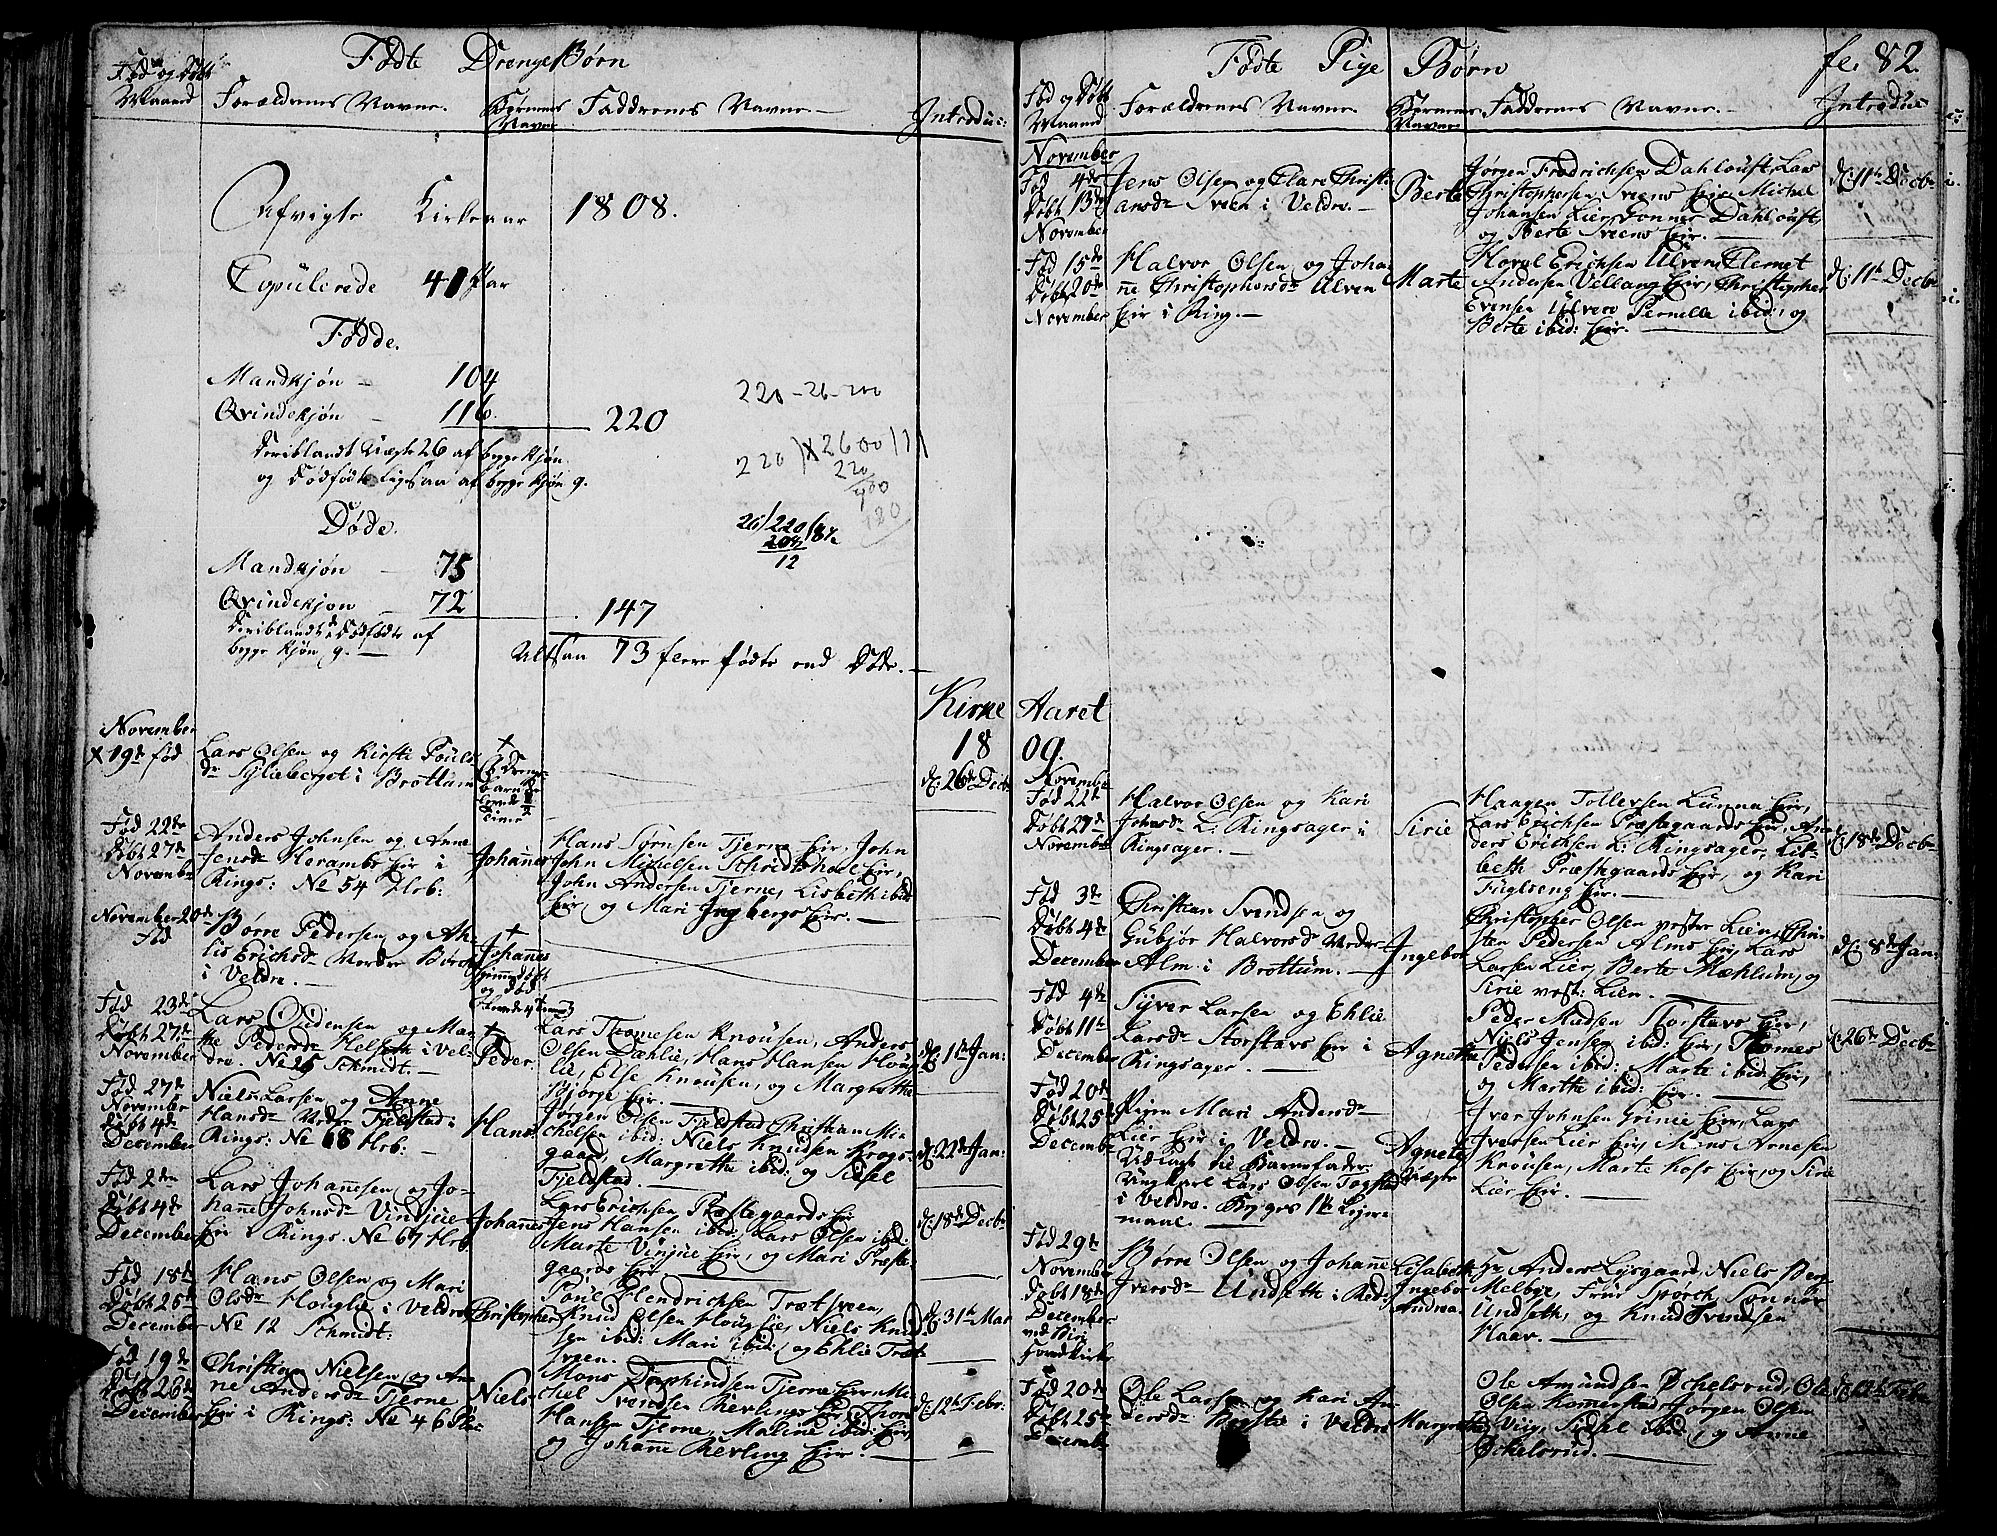 Fødte Drenge Børn
Fød og Døbt
Maaned
Forældrenes Navne.
Børnenes
Navne
Faddrenes Navne
Introdus:
Afvigte Kirkeaar 1808.
Copulerede 41 Par
Fødde.
Mandkjøn 104
Qvindekjøn 116
220
Deriblandt Uægte 26 af begge kjøn
og Dødfødte ligesaa af begge kjøn 9.
220-26-200
Døde.
26/220/8
208
12
Mandkjøn 75
Qvindekjøn 72
147
Deriblandt Dødfødte af
begge kjøn 9.
Altsaa 73 flere fødte end Døde.
Kirke
18
November
X 19de fød
Lars Olsen og Kirsti Pouls
dr Sylieberget i Brottum
d: 26de Decb
Fød 22de
Døbt 27de
Novembr
Anders Johnsen og Anne
Jensdr Herambs Eir i
Rings: No 54 Hrb:
Johannes
Hans Sørnsen Tjerne Eir, John
John Michelsen Schridshoel Eir,
John Andersen Tjerne, Lisbeth ibid:
Eir, og Mari Ingbergs Eir.
November 20de
Fød
Børre Pedersen og Ah-
lis Erichsdr Nordre Birch
i Veldre.
Johannes
hjemmedøbt
og død
Fød 23de
Døbt 27de
November
Lars Ovdensen og Mar-
the Pedersdr Helseth i Vel-
dre. No 25 Schmidt.
Peder.
Lars Thomesen Knousen, Anders
Olsen Dæhlie, Hans Hansen Houg-
lie, Else Knousen, og Margrethe
Bjørge Eir.
d: 1te Jan:
Fød 27de
November
Døbt 4de
December
Niels Larsen og Anne
Hansdr Nedre Fjeldstad i
Rings: No 68 Hrb:
Hans
Jørgen Olsen Fjeldstad Christian Mi-
chelsen ibid: Niels Knudsen Krogs-
gaard, Margrethe ibid: og Sidsel
Fjeldstad.
d: 22de Jan:
Fød 2den
Døbt 4de
December
Lars Johannesen og Jo-
hanne Johnsdr Vindjue
Eir i Rings. No 67 Hrb
Johannes
Lars Erichsen Præstegaards Eir
Jens Hansen ibid: Lars Olsen ibid:
Marte Vinjue Eir, og Mari Præste-
gaards Eir
d: 18de Decbr
Fød 18de
Døbt 25de
December
Hans Olsen og Mari
Olsdr Houglie i Veldre
No 12 Schmidt:
Christopher
Poul Hendrichsen Trætsveen,
Knud Olsen Houglie, Niels Knud-
sen ibid: Mari ibid: og Ehlie Træt-
sveen.
d: 31te Mar
Fød 19de
Døbt 26de
December
Christen Nielsen og An-
ne Andersdr Tjerne
Eir i Rings: No 46
Niels
Mons Tjerne Eir Mi-
chel Svendsen Kevlings Eir, Thore
Hansen Tjerne, Maline ibid: Eir,
og Johanne Kevling Eir.
d: 12te Febr:
Fødte Pige Børn
fe. 82.
Fød og Døbt
Maaned
Forældrenes Navne
Børnenes
Navne
Faddrenes Navne.
Introdus:
November
Fød 4de
Døbt 13de
November
Jens Olsen og Clare Christi-
ansdr Sveen i Veldre.
Berte
Jørgen Fredrichsen Dahlouft, Lars
Christophersen Sveens Eir, Michel
Johansen Lier, Gonner Dahlouft,
og Berte Sveens Eir.
d: 11te Decbr
Fød 15de
Døbt 20de
November
Halvor Olsen og Johan-
ne Christophersdr Ulven
Eir i Ring.
Marte
Hovel Erichsen Ulven, Clemet
Andersen Vellang Eir, Christopher
Evensen Ulven Pernille ibid: og
Berte ibid: Eir.
d: 11te Decbr
Aaret
09.
November
Fød 22de
Døbt 27de
November
Halvor Olsen og Kari
Johnsdr L: Ringsager i
Ringsager.
Sirie
Haagen Tollevsen Lunna Eir,
Lars Erichsen Præstegaards Eir, An-
ders Erichsen L: Ringsager, Lis-
beth Præstegaards Eir, og Kari
Fuglseng Eir.
d: 18de Decbr
Fød 3de
Døbt 4de
December
Christian Svendsen og
Gubjør Halvorsdr Nedre
Alm i Brottum.
Ingebor
Christopher Olsen vestre Lien, Chri-
sten Pedersen Alms Eir, Lars
Larsen Lier, Berte Mæhlum, og
Sirie vest: Lien.
d: 8de Jan:
Fød 4de
Døbt 11te
December
Syver Larsen og Ehlie
Larsdr Storstavs Eir i
Ringsager.
Agnethe
Peder Madsen Storstavs Eir,
Niels Jensen ibid: Eir, Thomes
Pedersen ibid: Marte ibid: Eir,
og Marthe ibid: Eir.
d: 26de Decbr
Fød 20de
Døbt 25de
December
Pigen Mari Andersdr
Lier Eir i Veldre.
Udlagt til Barnefader
Ungkarl Lars Olsen Togstad
i Veldre. Begges 1te Leier-
maal.
Agnete
Uægte
Iver Johnsen Grinie Eir, Lars
Iversen Lier Eir, Mons Arnesen
Knousen, Marte Kofs Eir, og Sirie
Lier Eir.
Fød 29de
November
Døbt 18de
December
ved Biri
Børre Olsen og Johanne
Iversdr Undseth i
Lisabeth
Ingebor
Andrea
Hr Anders Lysgaard, Niels Ber
Melbye, Frue Spørck, Sønner
Undseth, og Knud Svendsen
Haav.
Fød 20de
Døbt 25de
December
Ole Larsen og Kari An-
dersdr i Veldre
Margrethe
Ole Amundsen Øchelsrud, Ole
Olsen Komerstad, Jørgen Olsen
Viig, Sidsel ibid: og Anne
Øchelsrud.
d: 12te Febr